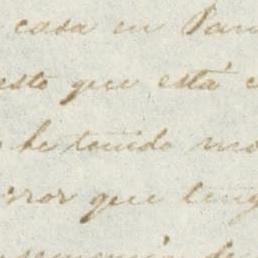 casa en Pan
esto que está
he tenido mo
error que teng